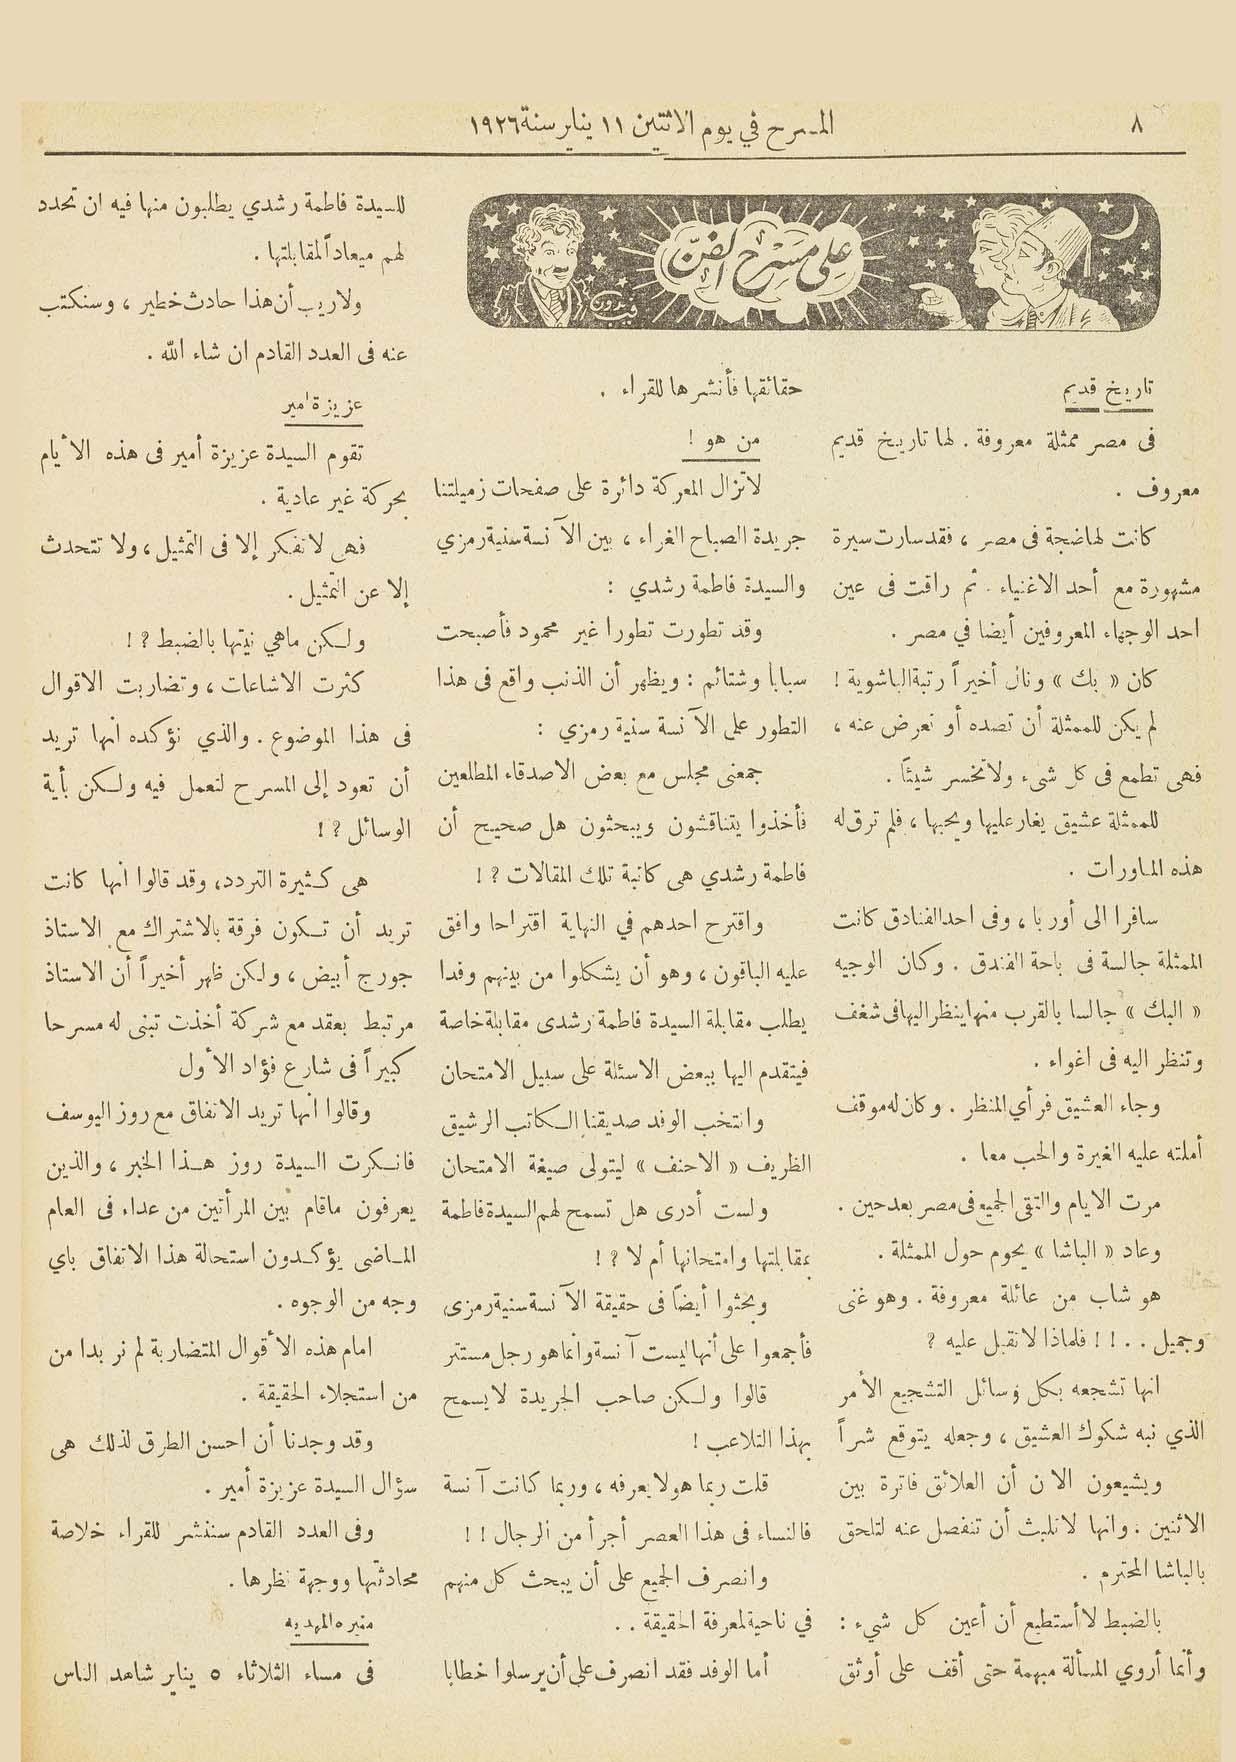 ٨
المسرح في يوم الاثنين ١١ يناير سنة ١٩٢٦
على مسرح الفن
تاريخ قديم
فى مصر ممثلة معروفة . لها تاريخ قديم
معروف .
كانت لها ضجة فى مصر ، فقد سارت سيرة
مشهورة مع أحد الاغنياء . ثم راقت فى عين
احد الوجهاء المعروفين أيضا في مصر .
كان « بك » ونال أخيراً رتبة الباشوية !
لم يكن للممثلة أن تصده أو تعرض عنه ،
فهى تطمع فى كل شىء ولا تخسر شيئاً .
للممثلة عشيق يغار عليها ويحبها ، فلم ترق له
هذه المناورات .
سافرا الى أوربا ، وفى احد الفنادق كانت
الممثلة جالسة فى باحة الفندق . وكان الوجيه
« البك » جالسا بالقرب منها ينظر اليها فى شغف
وتنظر اليه فى اغواء .
وجاء العشيق فرأي المنظر . وكان له موقف
أملته عليه الغيرة والحب معا .
مرت الايام والتقى الجميع فى مصر بعد حين .
وعاد « الباشا » يحوم حول الممثلة .
هو شاب من عائلة معروفة . وهو غنى
وجميل . . !! فلماذا لا تقبل عليه ؟
انها تشجعه بكل وسائل التشجيع الأمر
الذي نبه شكوك العشيق ، وجعله يتوقع شراً
ويشيعون الان أن العلائق فاترة بين
الاثنين . وانها لا تلبث أن تنفصل عنه لتلحق
بالباشا المحترم .
بالضبط لا أستطيع أن أعين كل شيء :
وأنما أروي المسألة مبهمة حتى أقف على أوثق
حقائقها فأنشرها للقراء .
من هو !
لا تزال المعركة دائرة على صفحات زميلتنا
جريدة الصباح الغراء ، بين الآنسة سنية رمزي
والسيدة فاطمة رشدي :
وقد تطورت تطورا غير محمود فأصبحت
سبابا وشتائم : ويظهر أن الذنب واقع فى هذا
التطور على الآنسة سنية رمزي :
جمعنى مجلس مع بعض الاصدقاء المطلعين
فأخذوا يتناقشون ويبحثون هل صحيح أن
فاطمة رشدي هى كاتبة تلك المقالات ؟ !
واقترح احدهم في النهاية اقتراحا وافق
عليه الباقون ، وهو أن يشكلوا من بينهم وفدا
يطلب مقابلة السيدة فاطمة رشدى مقابلة خاصة
فيتقدم اليها ببعض الاسئلة على سبيل الامتحان
وانتخب الوفد صديقنا الكاتب الرشيق
الظريف « الاحنف » ليتولى صيغة الامتحان
ولست أدرى هل تسمح لهم السيدة فاطمة
بمقابلتها وامتحانها أم لا ؟ !
وبحثوا أيضاً فى حقيقة الآنسة سنية رمزى
فأجمعوا على أنها ليست آنسة وانما هو رجل مستتر
قالوا ولكن صاحب الجريدة لا يسمح
بهذا التلاعب !
قلت ربما هو لا يعرفه ، وربما كانت آنسة
فالنساء فى هذا العصر أجرأ من الرجال ! !
وانصرف الجميع على أن يبحث كل منهم
في ناحية لمعرفة الحقيقة . .
أما الوفد فقد انصرف على أن يرسلوا خطابا
للسيدة فاطمة رشدي يطلبون منها فيه ان تحدد
لهم ميعاداً لمقابلتها .
ولا ريب أن هذا حادث خطير ، وسنكتب
عنه فى العدد القادم ان شاء الله .
عزيزة امير
تقوم السيدة عزيزة أمير فى هذه الأيام
بحركة غير عادية .
فهى لا تفكر إلا فى التمثيل ، ولا تتحدث
إلا عن التمثيل .
ولكن ماهي نيتها بالضبط ؟ !
كثرت الاشاعات ، وتضاربت الاقوال
فى هذا الموضوع . والذي نؤكده انها تريد
أن تعود إلى المسرح لتعمل فيه ولكن بأية
الوسائل ؟ !
هى كثيرة التردد، وقد قالوا انها كانت
تريد أن تكون فرقة بالاشتراك مع الاستاذ
جورج أبيض ، ولكن ظهر أخيراً أن الاستاذ
مرتبط بعقد مع شركة أخذت تبنى له مسرحا
كبيراً فى شارع فؤاد الأول
وقالوا انها تريد الاتفاق مع روز اليوسف
فانكرت السيدة روز هذا الخبر ، والذين
يعرفون ماقام بين المرأتين من عداء فى العام
الماضى يؤكدون استحالة هذا الاتفاق باي
وجه من الوجوه .
امام هذه الأقوال المتضاربة لم نر بدا من
من استجلاء الحقيقة .
وقد وجدنا أن احسن الطرق لذلك هى
سؤال السيدة عزيزة أمير .
وفى العدد القادم سننشر للقراء خلاصة
محادثتها ووجهة نظرها .
منيره المهديه
فى مساء الثلاثاء ٥ يناير شاهد الناس